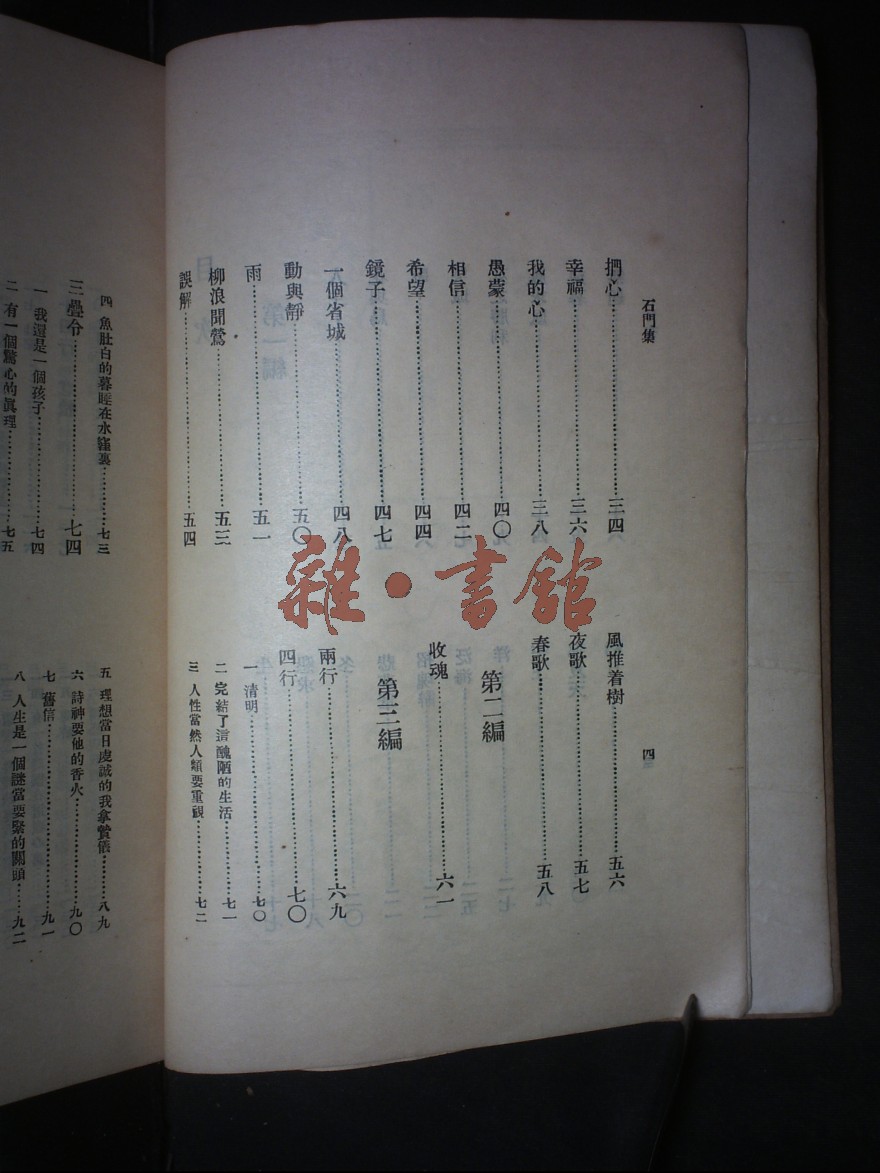 石門集
四
捫心三四
幸福三六
我的心三八
愚蒙四〇
相信四二
希望四四
鏡子四七
一個省城四八
動與靜五〇
雨五一
柳浪聞鶯五三
誤解五四
風推着樹五六
夜歌五七
春歌五八
第二編
收魂六一
第三編
兩行六九
四行七〇
一 清明七〇
二 完結了這醜陋的生活七一
三 人性當然人類要重視七二
四 魚肚白的暮睡在水窪裏七三
三疊令七四
一 我還是一個孩子七四
二 有一個驚心的眞理七五
五 理想當日虔誠的我拿贄儀八九
六 詩神要他的香火九〇
七 舊信九一
八 人生是一個謎當要緊的關頭九二
雜·書館